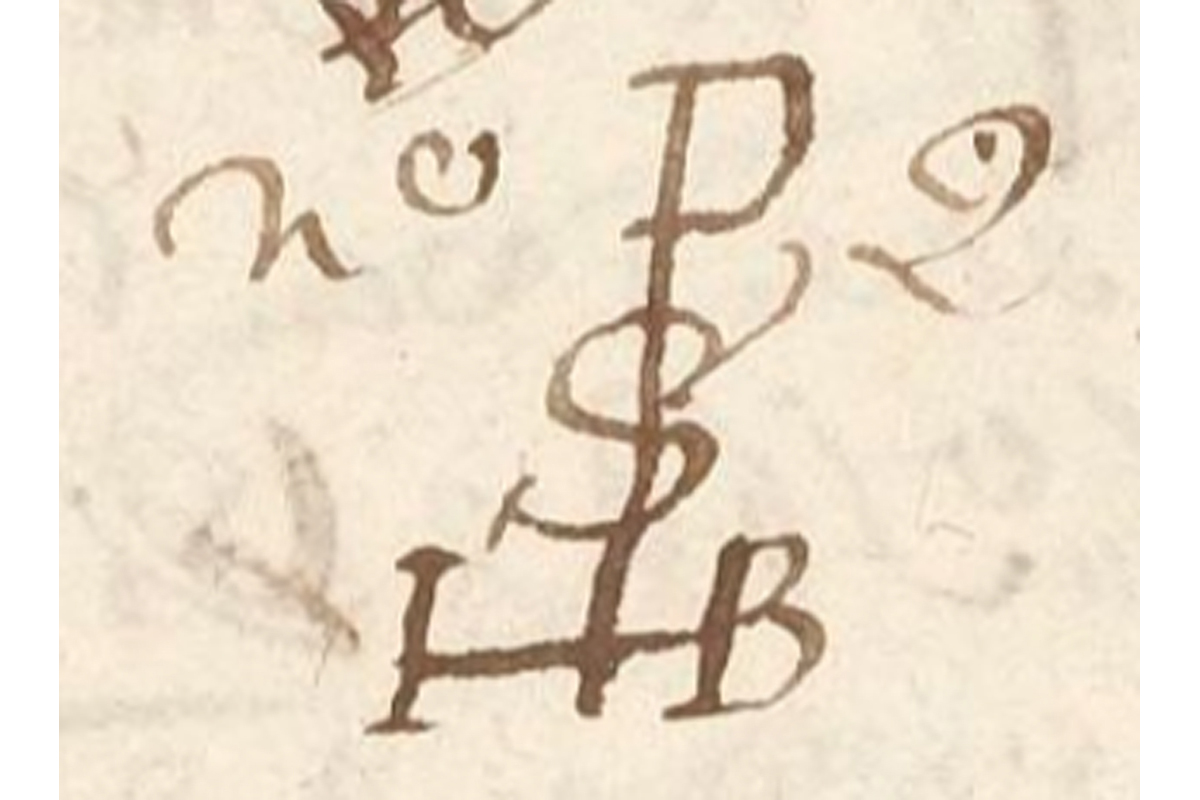 no 2
P
S
HB